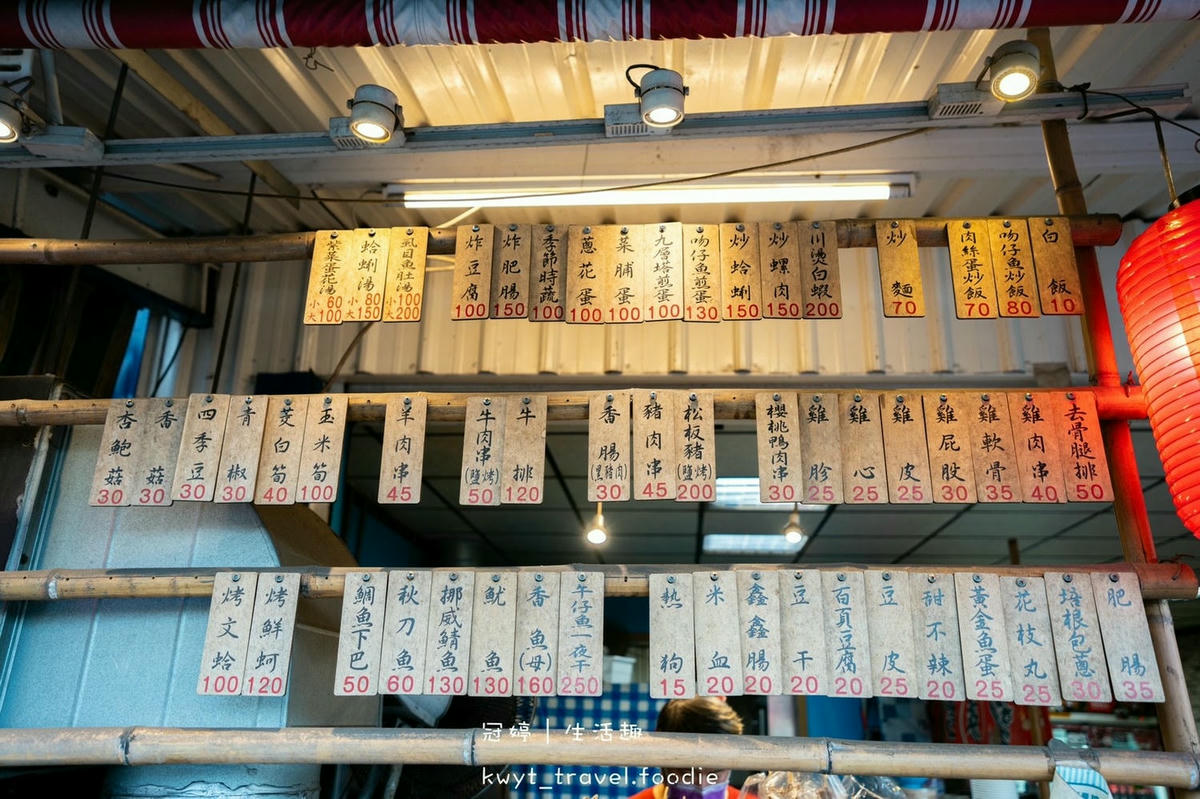 紫菜蛋花湯 小60 大100
蛤蜊湯 小80 大150
虱目魚肚湯 小100 大200
炸豆腐 100
炸肥腸 150
季節時蔬 100
蔥花蛋 100
菜脯蛋 100
九層塔煎蛋 100
吻仔魚煎蛋 130
炒蛤蜊 150
炒螺肉 150
川燙白蝦 200
炒麵 70
肉絲蛋炒飯 70
吻仔炒飯 80
白飯 10
杏鮑菇 30
香菇 30
四季豆 30
青椒 30
茭白筍 40
玉米筍 100
羊肉串 45
牛肉串(鹽烤) 50
牛排 120
香腸(黑豬肉) 30
豬肉串 45
松板豬(鹽烤) 200
櫻桃鴨肉串 30
雞胗 25
雞心 25
雞皮 25
雞屁股 30
雞軟骨 35
雞肉串 40
去骨腿排 50
烤文蛤 100
烤鮮蚵 120
鯛魚下巴 50
秋刀魚 60
挪威鯖魚 130
魷魚 130
香魚(母) 160
午仔魚一夜干 250
熱狗 15
米血 20
鑫鑫腸 20
豆干 20
百頁豆腐 20
豆皮 25
甜不辣 20
黃金魚蛋 25
花枝丸 25
培根包蔥 30
肥腸 35
冠婷｜生活趣
kwyt_travel.foodie